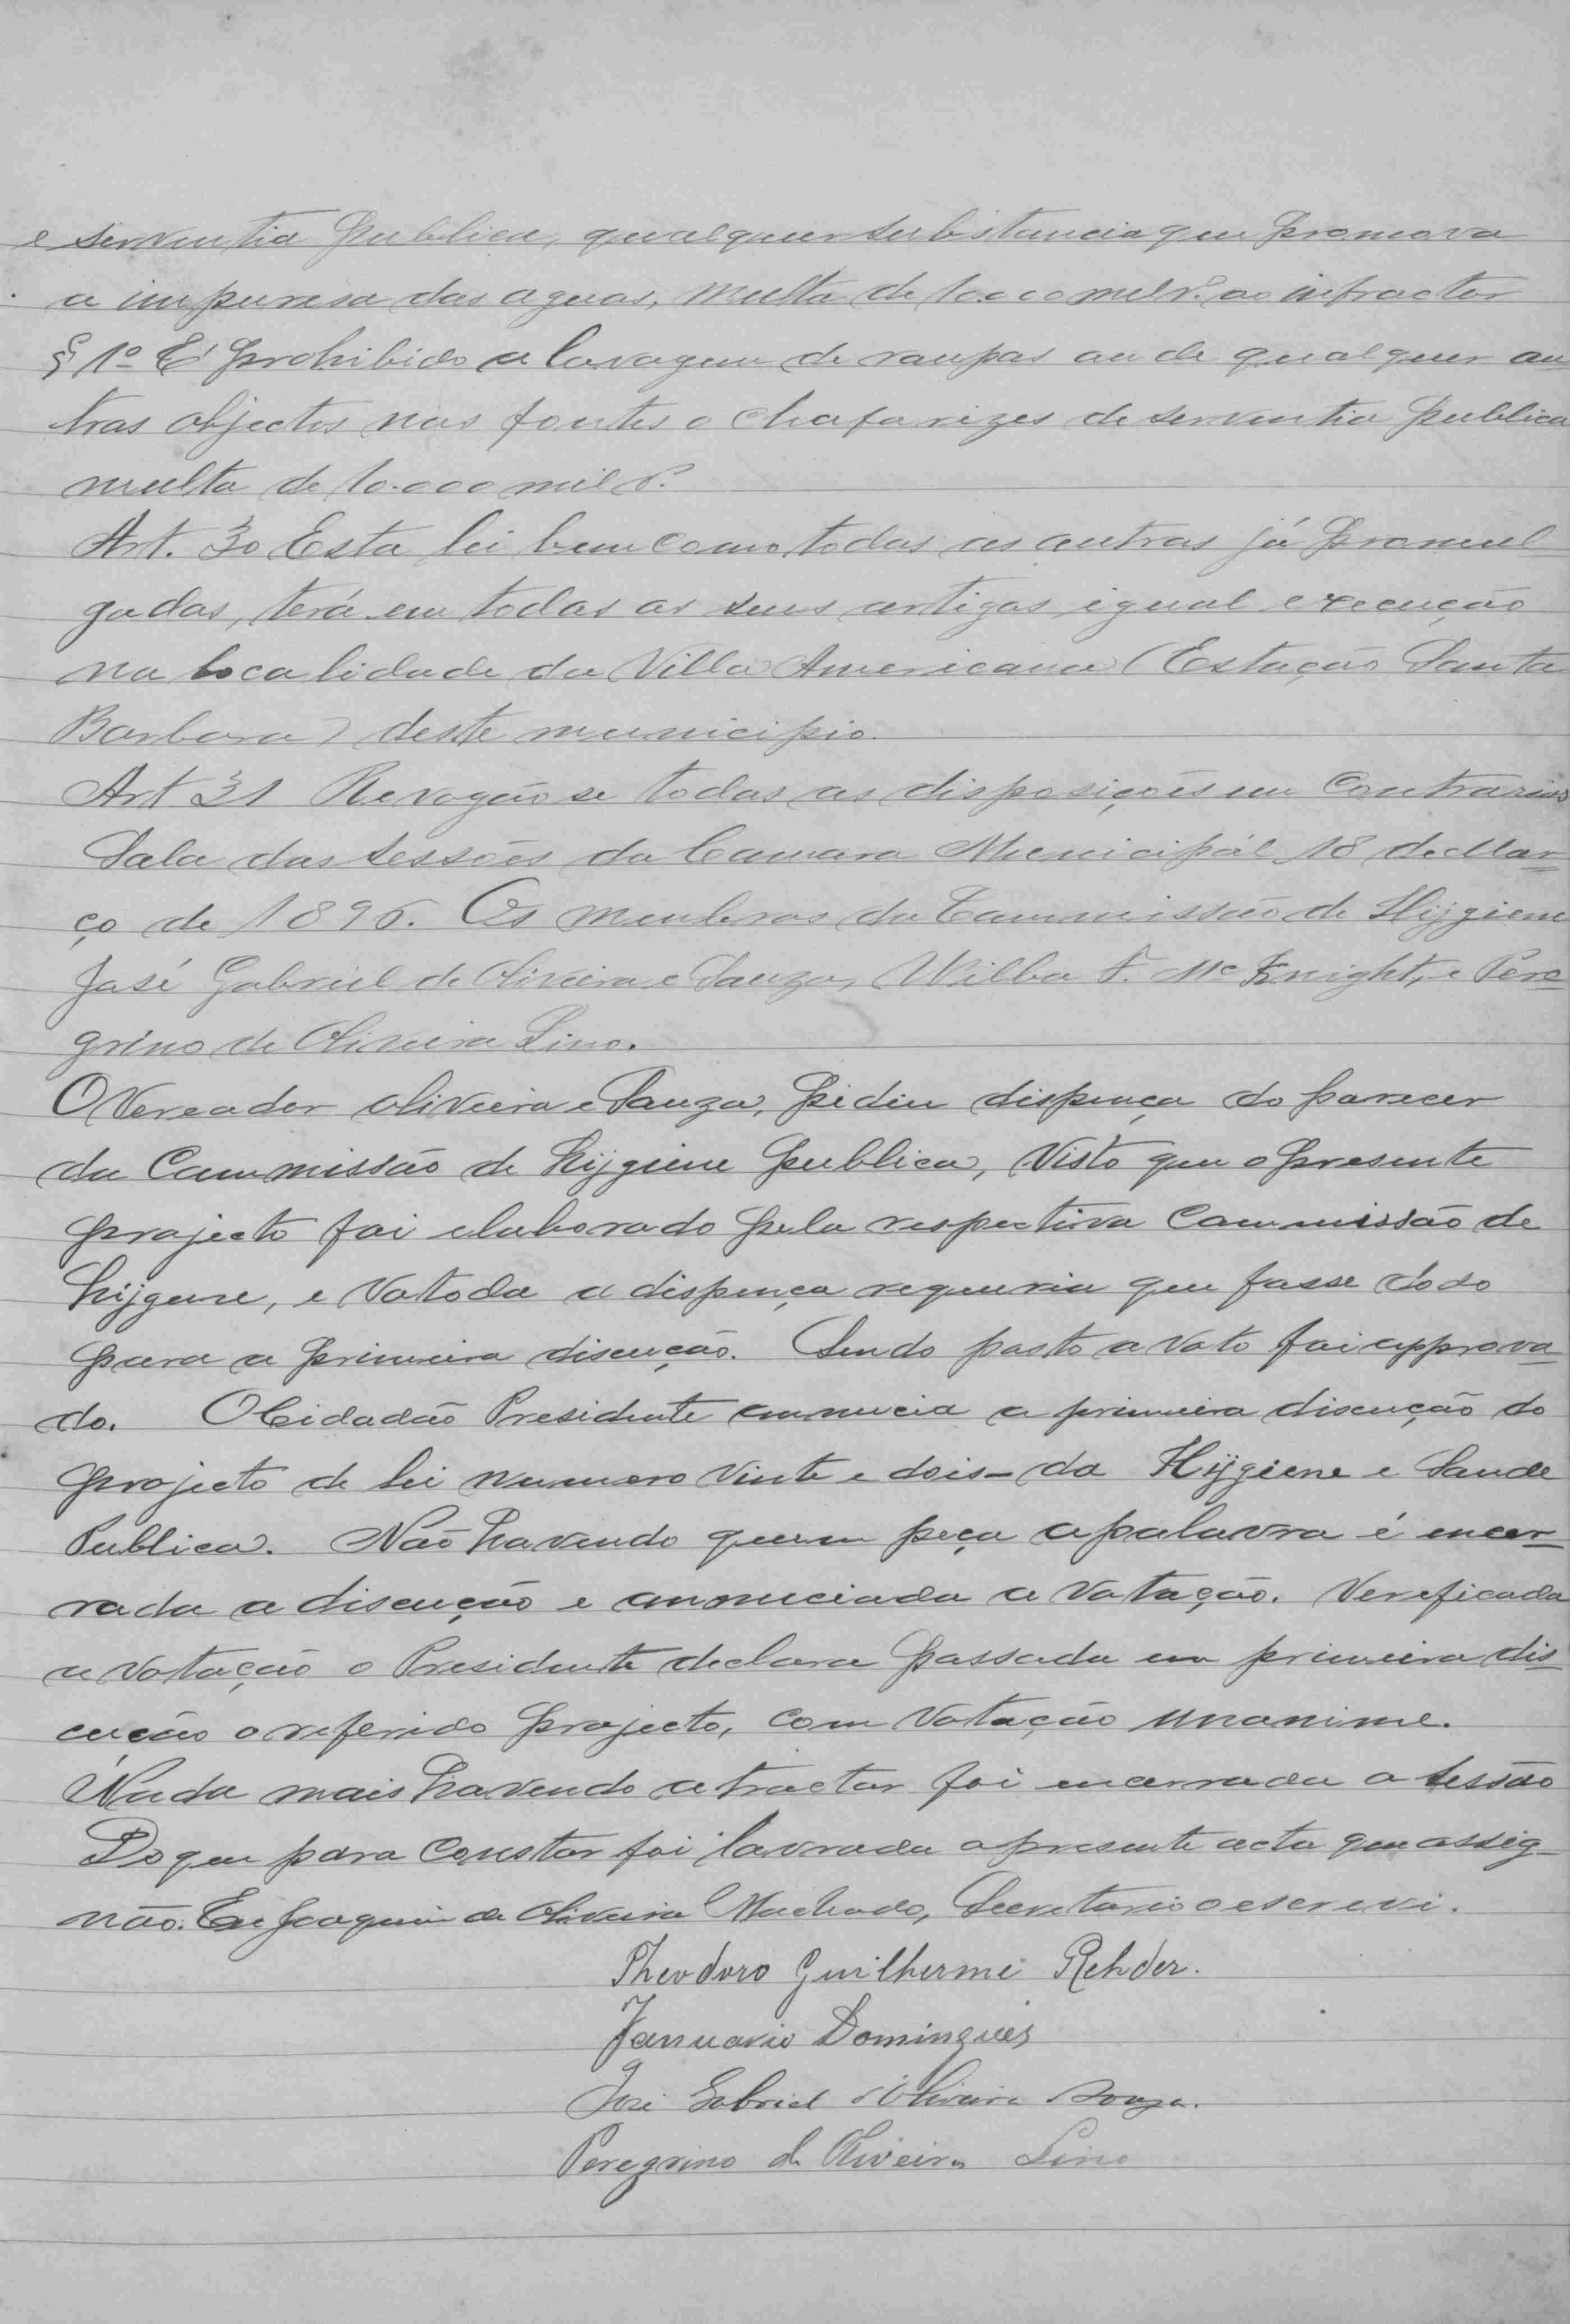 e serventia publica, qualquer substancia que promova
a impuresa das aguas, multa de 10.000 mil rs. ao infractor
§ 1º E' prohibido a lavagem de roupas ou de qualquer ou
tros objectos nas fontes e chafarizes de serventia publica
multa de 10.000 mil rs.
Art. 30 Esta lei bem como todas as outras já promul
gadas, terá em todas os seus artigos igual execução
na localidade da Villa Americana (Estação Santa
Barbara) deste municipio.
Art 31 Revogão se todas as disposições em contrario
Sala das sessões da Camara Municipál 18 de Mar=
ço de 1896. Os membros da Commissão de Hijgiene
José Gabriel de Oliveira e Souza, Wilba F. Mc Knight, e Pere=
grino de Oliveira Lino.
O Vereador Oliveira e Souza, pidiu dispença do parecer
da Commissão de hijgiene publica, visto que o presente
projecto foi elaborado pela respectiva Commissão de
hijgene, e votada a dispença requeria que fosse dado
para a primeira discução. Sendo posto a voto foi approva=
do. O Cidadão Presidente annuncia a primeira discução do
projecto de lei numero vinte e dois - da Hijgiene e Saude
Publica. Não havendo quem peça a palavra é encer=
rada a discução e annunciada a votação. Vereficada
a votação o Presidente declara passada em primeira dis=
cução o referido projecto, com votação unanime.
Nada mais havendo a tractar foi encerrada a sessão
Do que para constar foi lavrada a presente acta que assig-
não. Eu Joaquim de Oliveira Machado, Secretario o escrevi.
Theodoro Guilherme Rehder.
Januario Domingues
José Gabriel d'Oliveira Souza.
Peregrino de Oliveira Lino